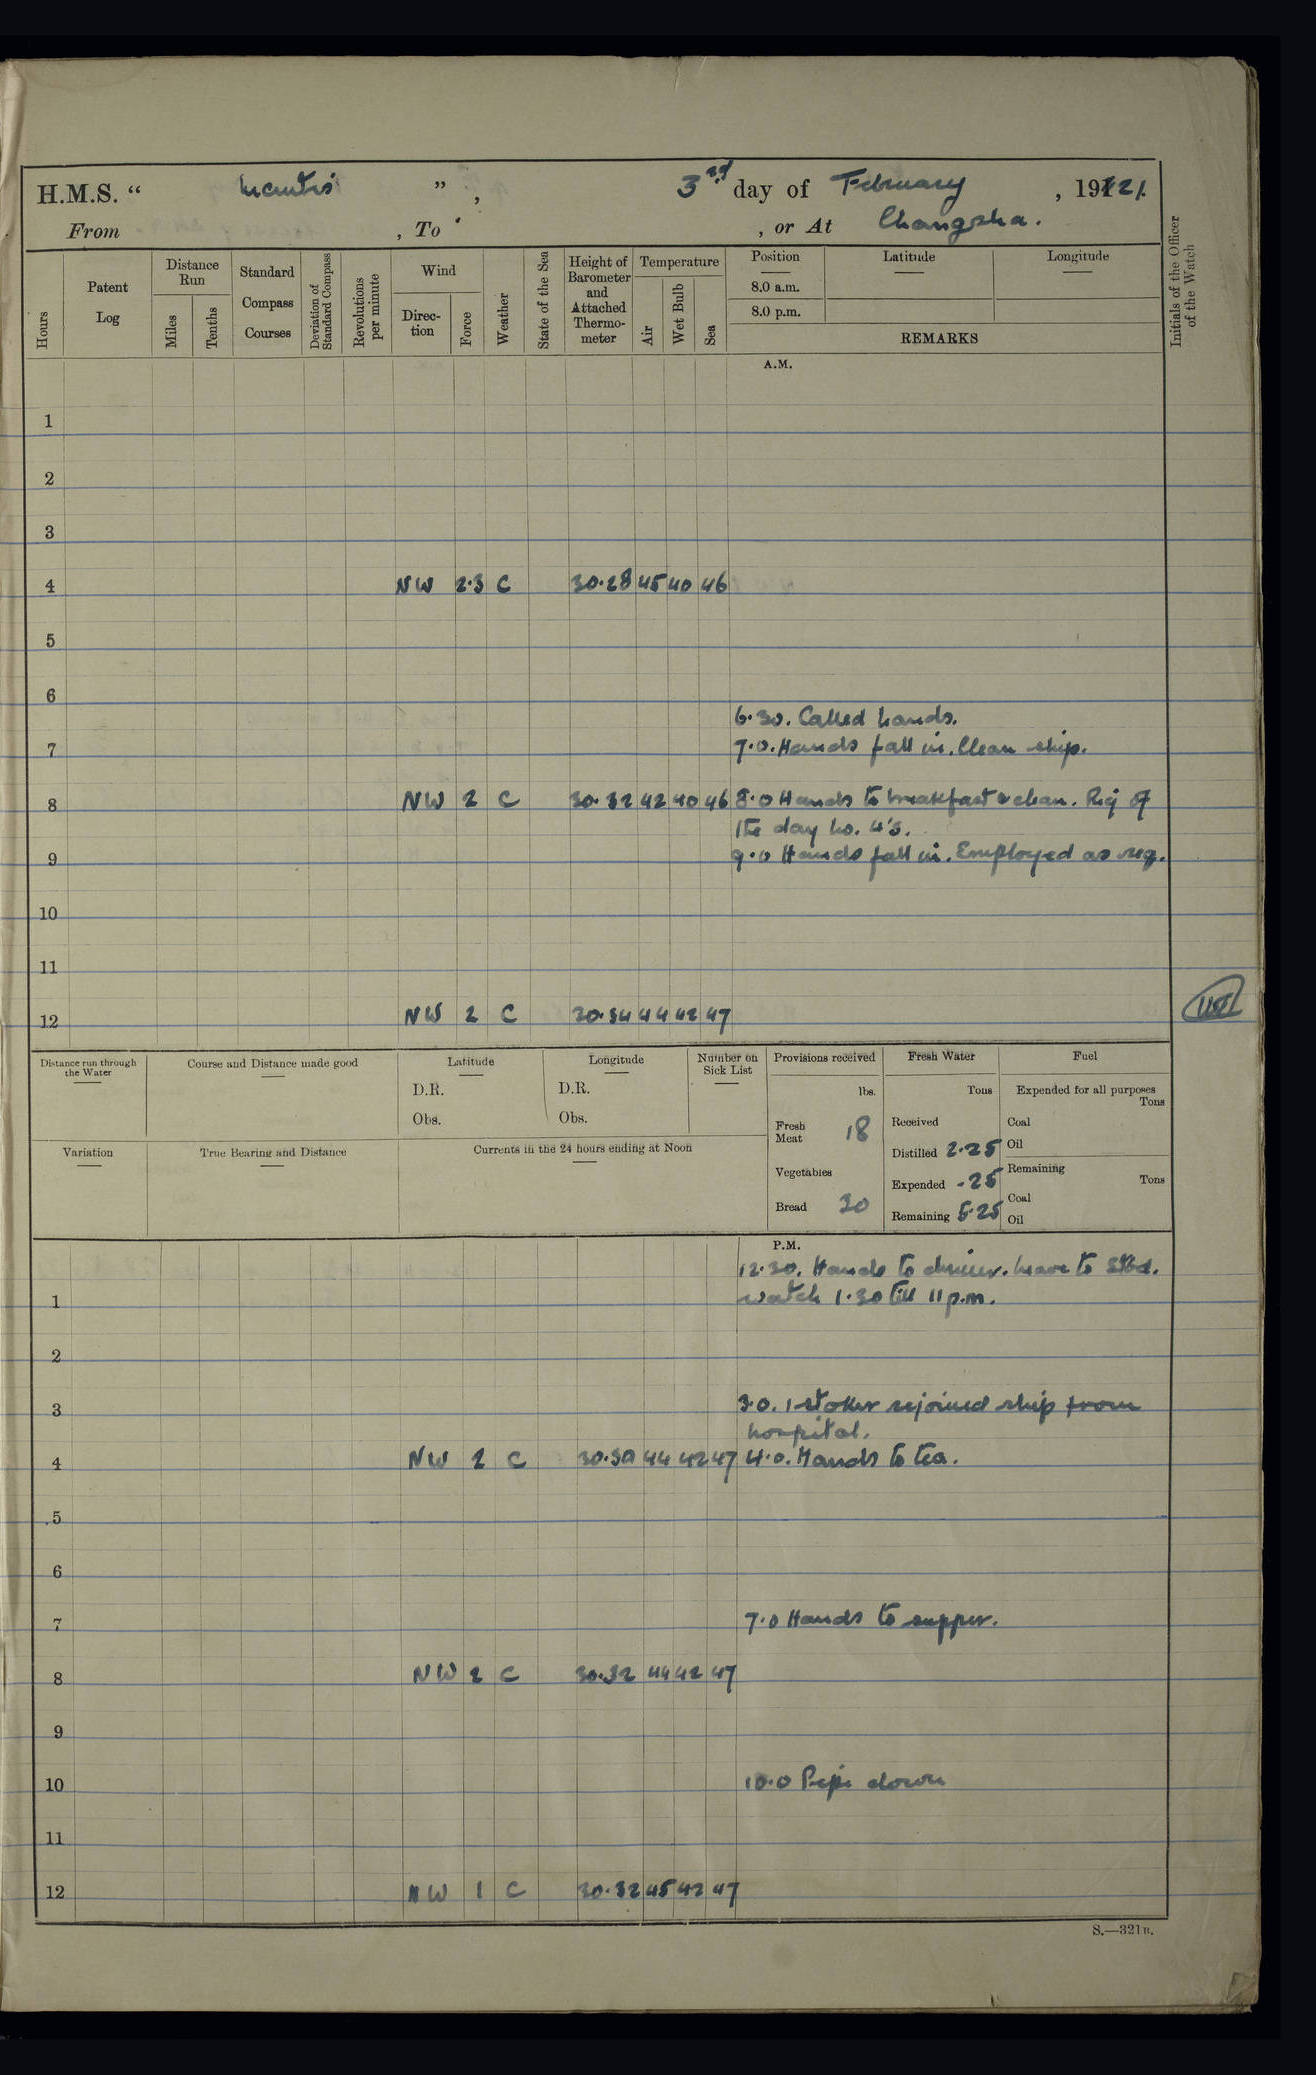 H.M.S. “ Mantis ” , 3rd day of February , 1921.
From , To , or At Changsha.
Hours
Patent Log
Distance Run
Miles
Tenths
Standard Compass Courses
Deviation of Standard Compass
Revolutions per minute
Wind
Direction
Force
Weather
State of the Sea
Height of Barometer and Attached Thermometer
Temperature
Air
Wet Bulb
Sea
Position
8.0 a.m.
8.0 p.m.
Latitude
Longitude
REMARKS
Initials of the Officer of the Watch
A.M.
1
2
3
4 NW 2.3 C 30.28 45 40 46
5
6
6.30. Called hands.
7 7.0. Hands fall in. Clean ship.
8 NW 2 C 30.32 42 40 46 8.0 Hands to breakfast & clean. Rig of
the day No. 4's.
9 9.0 Hands fall in. Employed as req.
10
11
12 NW 2 C 30.34 44 42 47
Distance run through the Water
Course and Distance made good
Latitude
D.R.
Obs.
Longitude
D.R.
Obs.
Number on Sick List
Provisions received
lbs.
Fresh Meat 18
Vegetables
Bread 30
Fresh Water
Tons
Received
Distilled 2.25
Expended .25
Remaining 5.25
Fuel
Expended for all purposes
Tons
Coal
Oil
Remaining
Tons
Coal
Oil
Variation
True Bearing and Distance
Currents in the 24 hours ending at Noon
P.M.
12.30. Hands to dinner. Leave to Stbd.
1 watch 1.30 till 11 p.m.
2
3 3.0. 1 stoker rejoined ship from
hospital.
4 NW 2 C 30.30 44 42 47 4.0. Hands to tea.
5
6
7 7.0 Hands to supper.
8 NW 2 C 30.32 44 42 47
9
10 10.0 Pipe down
11
12 NW 1 C 30.32 45 42 47
S.—321B.